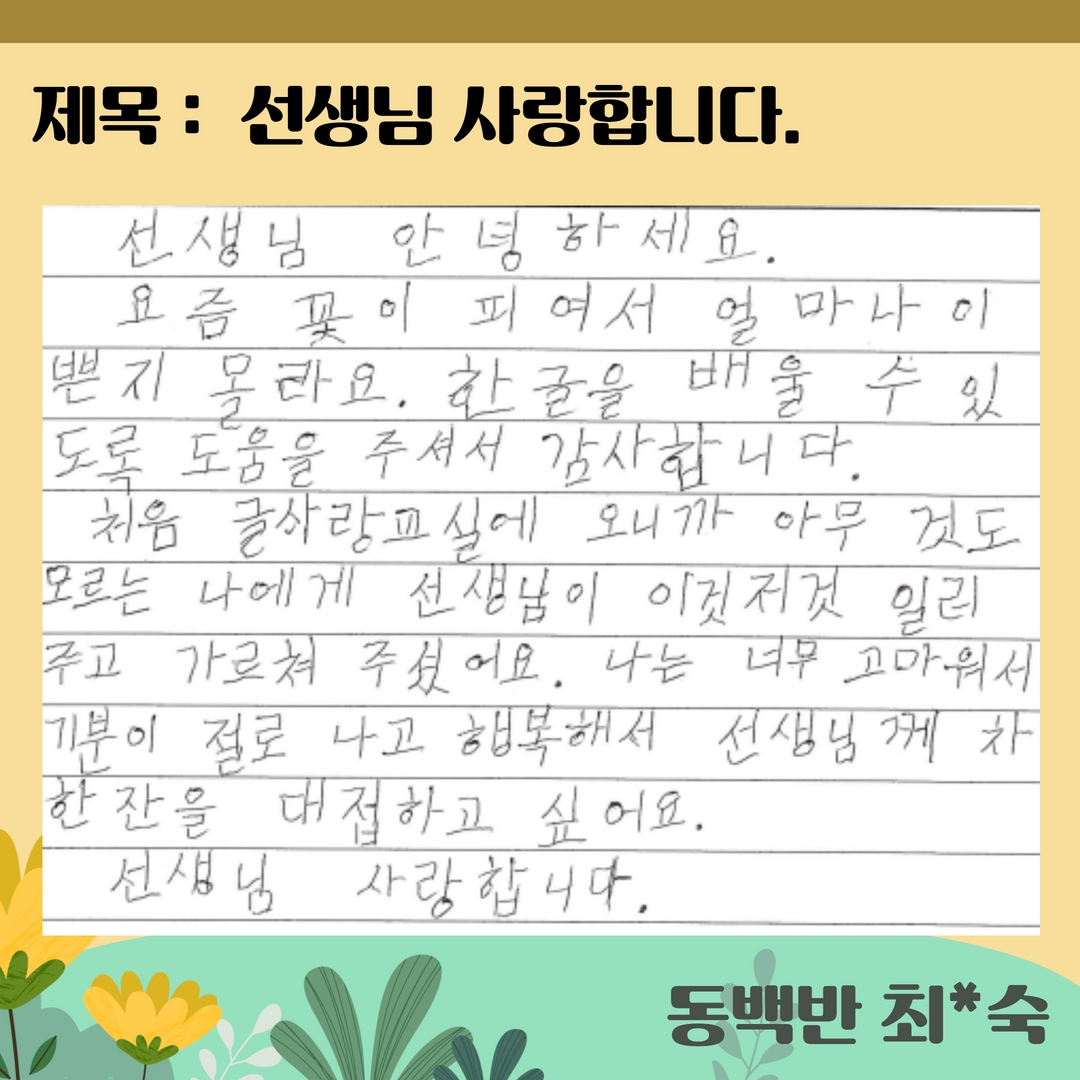 제목 : 선생님 사랑합니다.
선생님 안녕하세요.
요즘 꽃이 피여서 얼마나 이
쁜지 몰라요. 한글을 배울 수 있
도록 도움을 주셔서 감사합니다.
처음 글사랑교실에 오니까 아무 것도
모르는 나에게 선생님이 이것저것 일러
주고 가르쳐 주셨어요. 나는 너무 고마워서
기분이 절로 나고 행복해서 선생님께 차
한 잔을 대접하고 싶어요.
선생님 사랑합니다.
동백반 최*숙